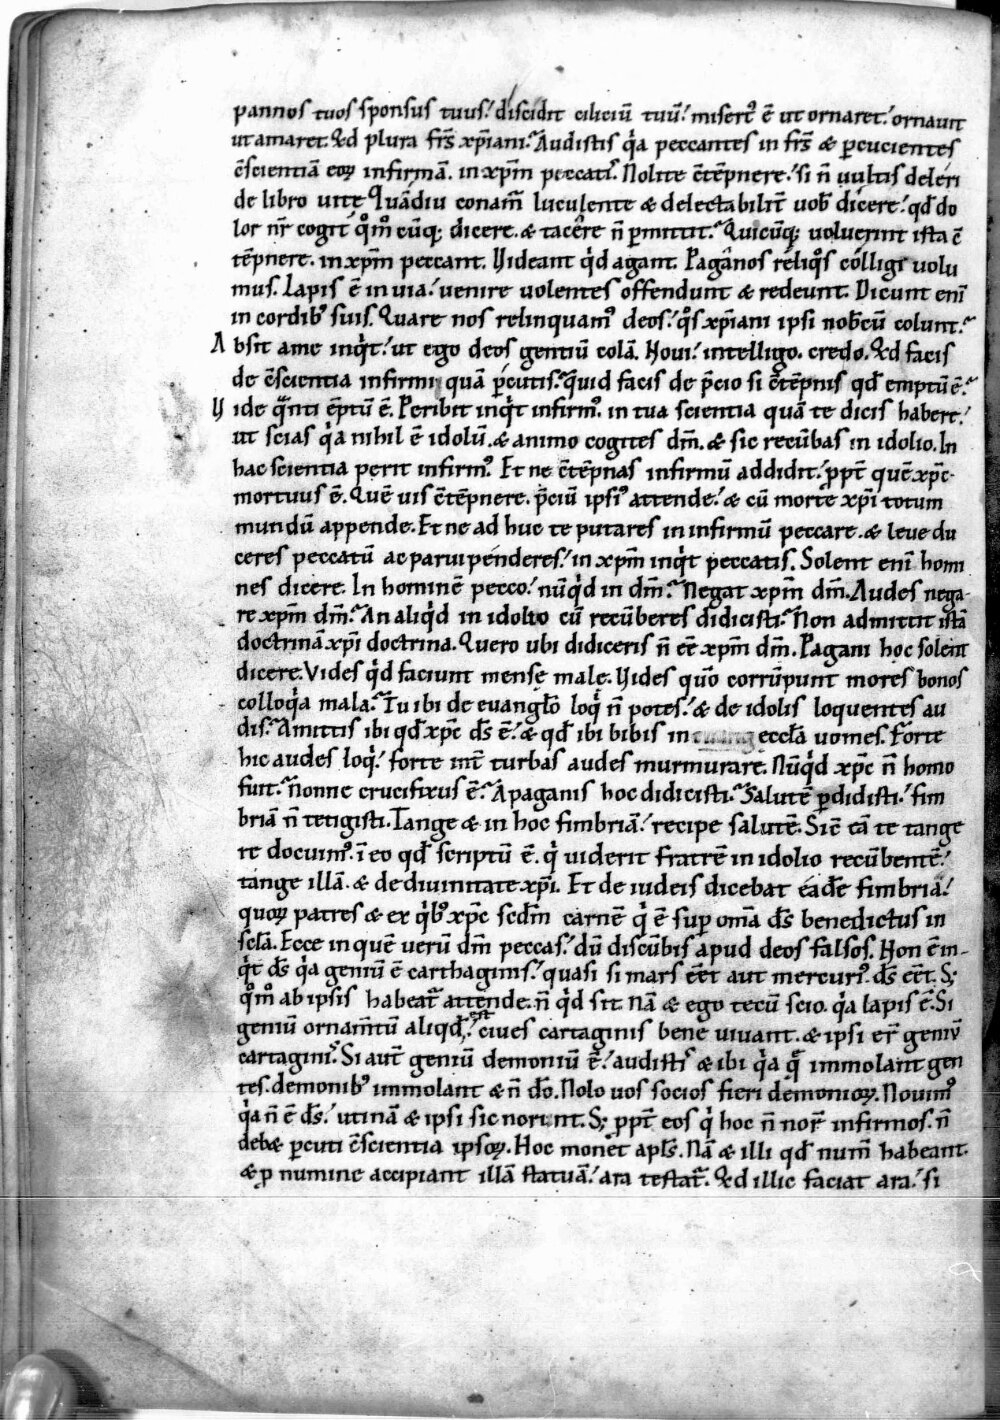 pannos tuos sponsus tuus.' discidit ciliciū tuū.' misert᷒ ē ut ornaret.' ornauit
ut amaret. Qd plura frs̄ xp̄iani.' Audistis qͥa peccantes in frs̄ & ꝑcucientes
c̄scientiā eoꝝ infirmā. in xp̄m peccatis. Nolite c̄tēpnere.' si n̄ uultis deleri
de libro uitę Quādiu conam̄ luculente & delectabilit̄ uob̄ dicere.' qd̄ do
lor nr̄ cogit qͦmͦ cūq; dicere. & tacêre n̄ ꝑmittit. Quicūq; uoluerint ista c̄
tēpnere. in xp̄m peccant. Uideant qͥd agant. Pagânos reliqͦs cólligi uolu
mus. Lapis ē in uia.' uenire uolentes offendunt & redeunt. Dicunt enī
in cordib᷒ suis. Quare nos relinquam᷒ deos.' qͦs xp̄iani ipsi nob̄cū colunt.
Absit a me inqͥt.' ut ego deos gentiū colā. Noui.' intelligo. credo. Qd facis
de c̄scientia infirmi quā ꝑcutis. quid facis de p̄cio si c̄tēpnis qd̄ emptū ē.
Uide qͣnti ēptū ē. Peribit inqͥt infirm᷒. in tua scientia quā te dicis habere.'
ut scias qͥa nihil ē idolū. & animo cogites dm̄. & sic recūbas in idolio. In
hac scientia perit infirm᷒. Et ne c̄tēpnas infirmū addidit.' ꝓpt̄ quē xp̄c
mortuus ē. Quē uis c̄tēpnere. p̄ciū ipsi᷒ attende.' & cū morte xp̄i totum
mundū appende. Et ne ad huc te putares in infirmū peccare. & leue du
ceres peccatū ac parui penderes.' in xp̄m inqͥt peccatis. Solent enī homi
nes dicere. In hominē pecco.' nūqͥd in dm̄. Negat xp̄m dm̄. Audes nega-
re xp̄m dm̄. An aliqͥd in idolio cū recūberes didicisti. Non admittit istā
doctrinā xp̄i doctrina. Quero ubi didiceris n̄ eē xp̄m dm̄. Pagani hoc solent
dicere. Vides qͥd faciunt mensę male. Uides quo᷒ corrūpunt mores bonos
colloqͥa mala. Tu ibi de euangl̄o loqͥ n̄ potes.' & de idolis loquentes au
dis. Amittis ibi qd̄ xp̄c ds̄ ē.' & qd̄ ibi bibis in eccl̄a uomes. Forte
hic audes loqͥ.' forte int̄ turbas audes murmurare. Nūqͥd xp̄c n̄ homo
fuit. Nonne crucifixus ē. A paganis hoc didicisti. Salutē ꝑdidisti.' fim
briā n̄ tetigisti. Tange & in hoc fimbriā.' recipe salutē. Sic̄ eā te tange
re docuim᷒. ī eo qd̄ scriptū ē. qͥ uiderit fratrē in idolio recūbentē.'
tange illā. & de diuinitate xp̄i. Et de iudeis dicebat eādē fimbriā.'
quoꝝ patres & ex qͥb᷒ xp̄c scdm̄ carnē qͥ ē suꝑ omā ds̄ benedictus in
scl̄a. Ecce in quē uerū dm̄ peccas.' dū discūbis apud deos falsos. Non ē in-
qͥt ds̄ qͥa geniū ē carthaginis.' quasi si mars eēt aut mercuri᷒. ds̄ eēt. S;
qͦmͦ ab ipsis habeat̄ attende. n̄ qͥd sit. Nā & ego tecū scio. qͥa lapis ē. Si
geniū ornam̄tū aliqd̄ est.' ciues cartaginis bene uiuant. & ipsi er̄ geniū
cartagini᷒. Si aut̄ geniū demoniū ē.' audisti & ibi qͥa qͣ immolant gen
tes. demonib᷒ immolant & n̄ do̅. Nolo uos socios fieri demonioꝝ. Nouim᷒
qͥa n̄ ē ds̄.' utinā & ipsi sic norint. S; ꝓpt̄ eos qͥ hoc n̄ nor̄ infirmos. n̄
deb& ꝑcuti c̄scientia ipsoꝝ. Hoc monet apl̄s. Nā & illi qd̄ num̄ habeant.
& ꝓ numine accipiant illā statuā.' ara testat̄. Qd illic faciat ara.' si